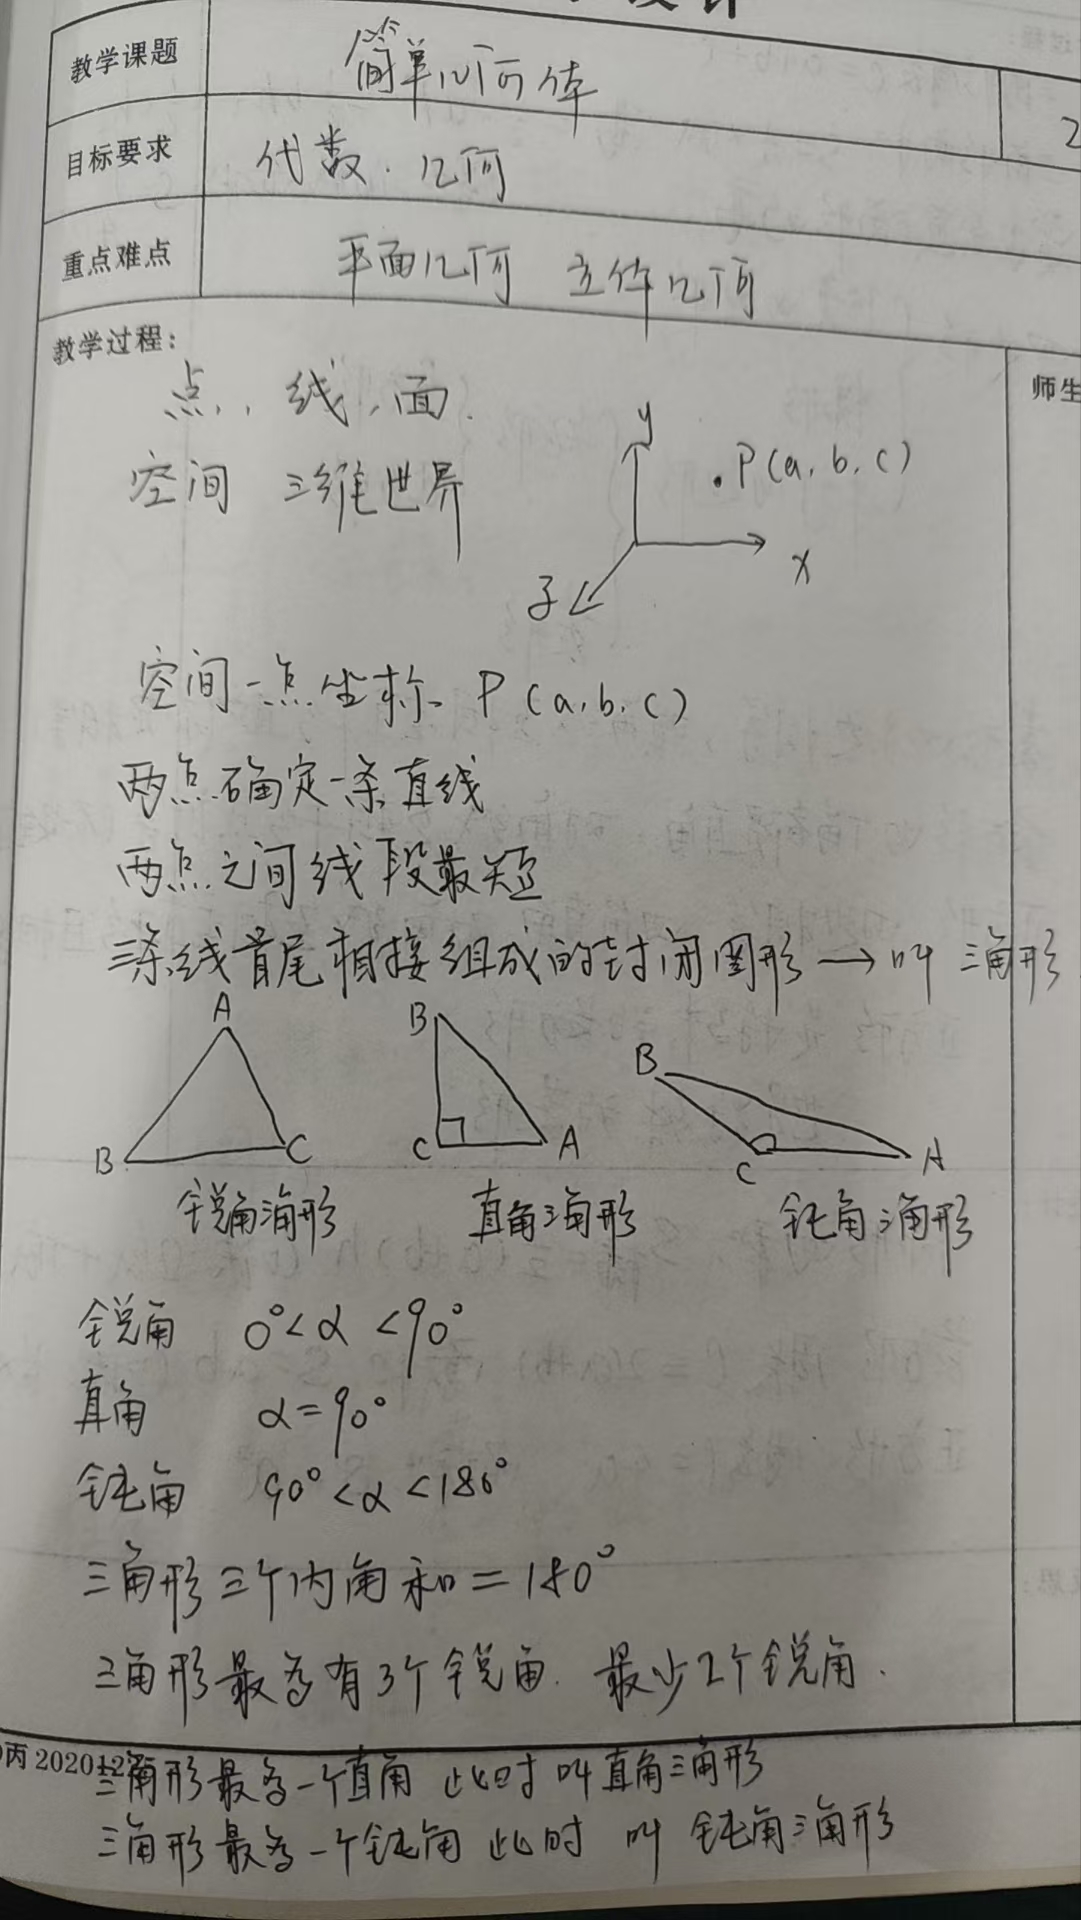 教学课题 简单几何体
目标要求 代数、几何
重点难点 平面几何 立体几何
教学过程:
师生
点、线、面.
空间 三维世界
y
P(a, b, c)
x
z
空间一点坐标 P(a, b, c)
两点确定一条直线
两点之间线段最短
三条线首尾相接组成的封闭图形→叫 三角形
A B C
B C A
B C A
锐角三角形 直角三角形 钝角三角形
锐角 0°<α<90°
直角 α=90°
钝角 90°<α<180°
三角形三个内角和=180°
三角形最多有3个锐角. 最少2个锐角.
丙 202012
三角形最多一个直角 此时叫直角三角形
三角形最多一个钝角 此时 叫 钝角三角形